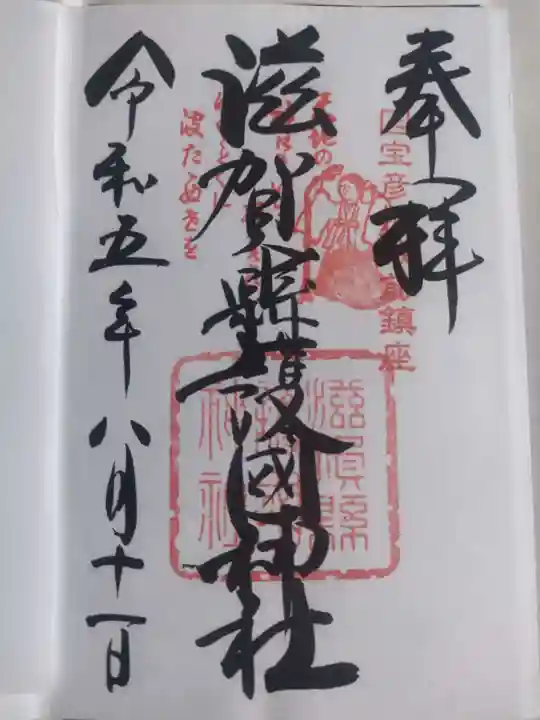 奉拝
国宝彦根城前鎮座
滋賀縣護國神社
滋賀縣護國神社
波たゝぬきを
令和五年八月十一日